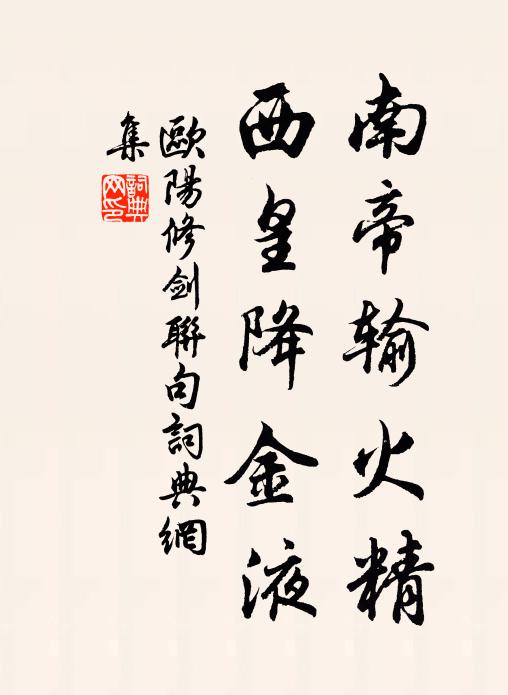 南帝输火精
西皇降金液
歐陽修劍聯句詞典網
集
詞典
网印